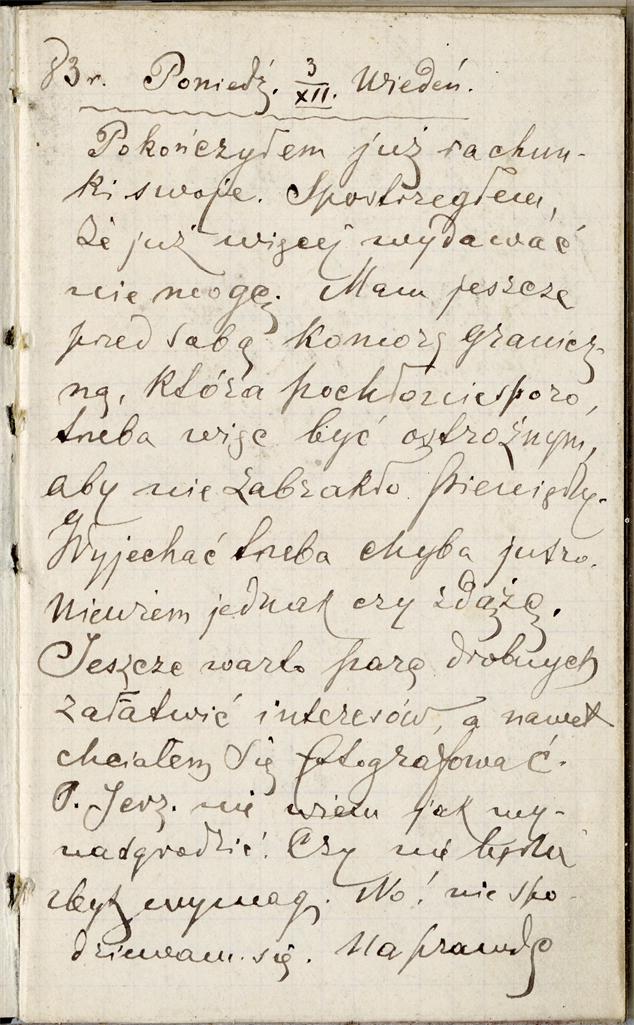 83 r. Poniedź. 3/XII. Wiedeń.
Pokończyłem już rachun-
ki swoje. Spostrzegłem,
że już więcej wydawać
nie mogę. Mam jeszcze
przed sobą komorę granicz-
ną, która pochłonie sporo,
trzeba więc być ostrożnym,
aby nie zabrakło pieniędzy.
Wyjechać trzeba chyba jutro.
Niewiem jednak czy zdążę.
Jeszcze warto parę drobnych
załatwić interesów, a nawet
chciałem się fotografować.
P. Jerz. nie wiem jak wy-
nadgrodzić. Czy nie będzie
zbyt wymag. No! nie spo-
dziewam się. Naprawdę